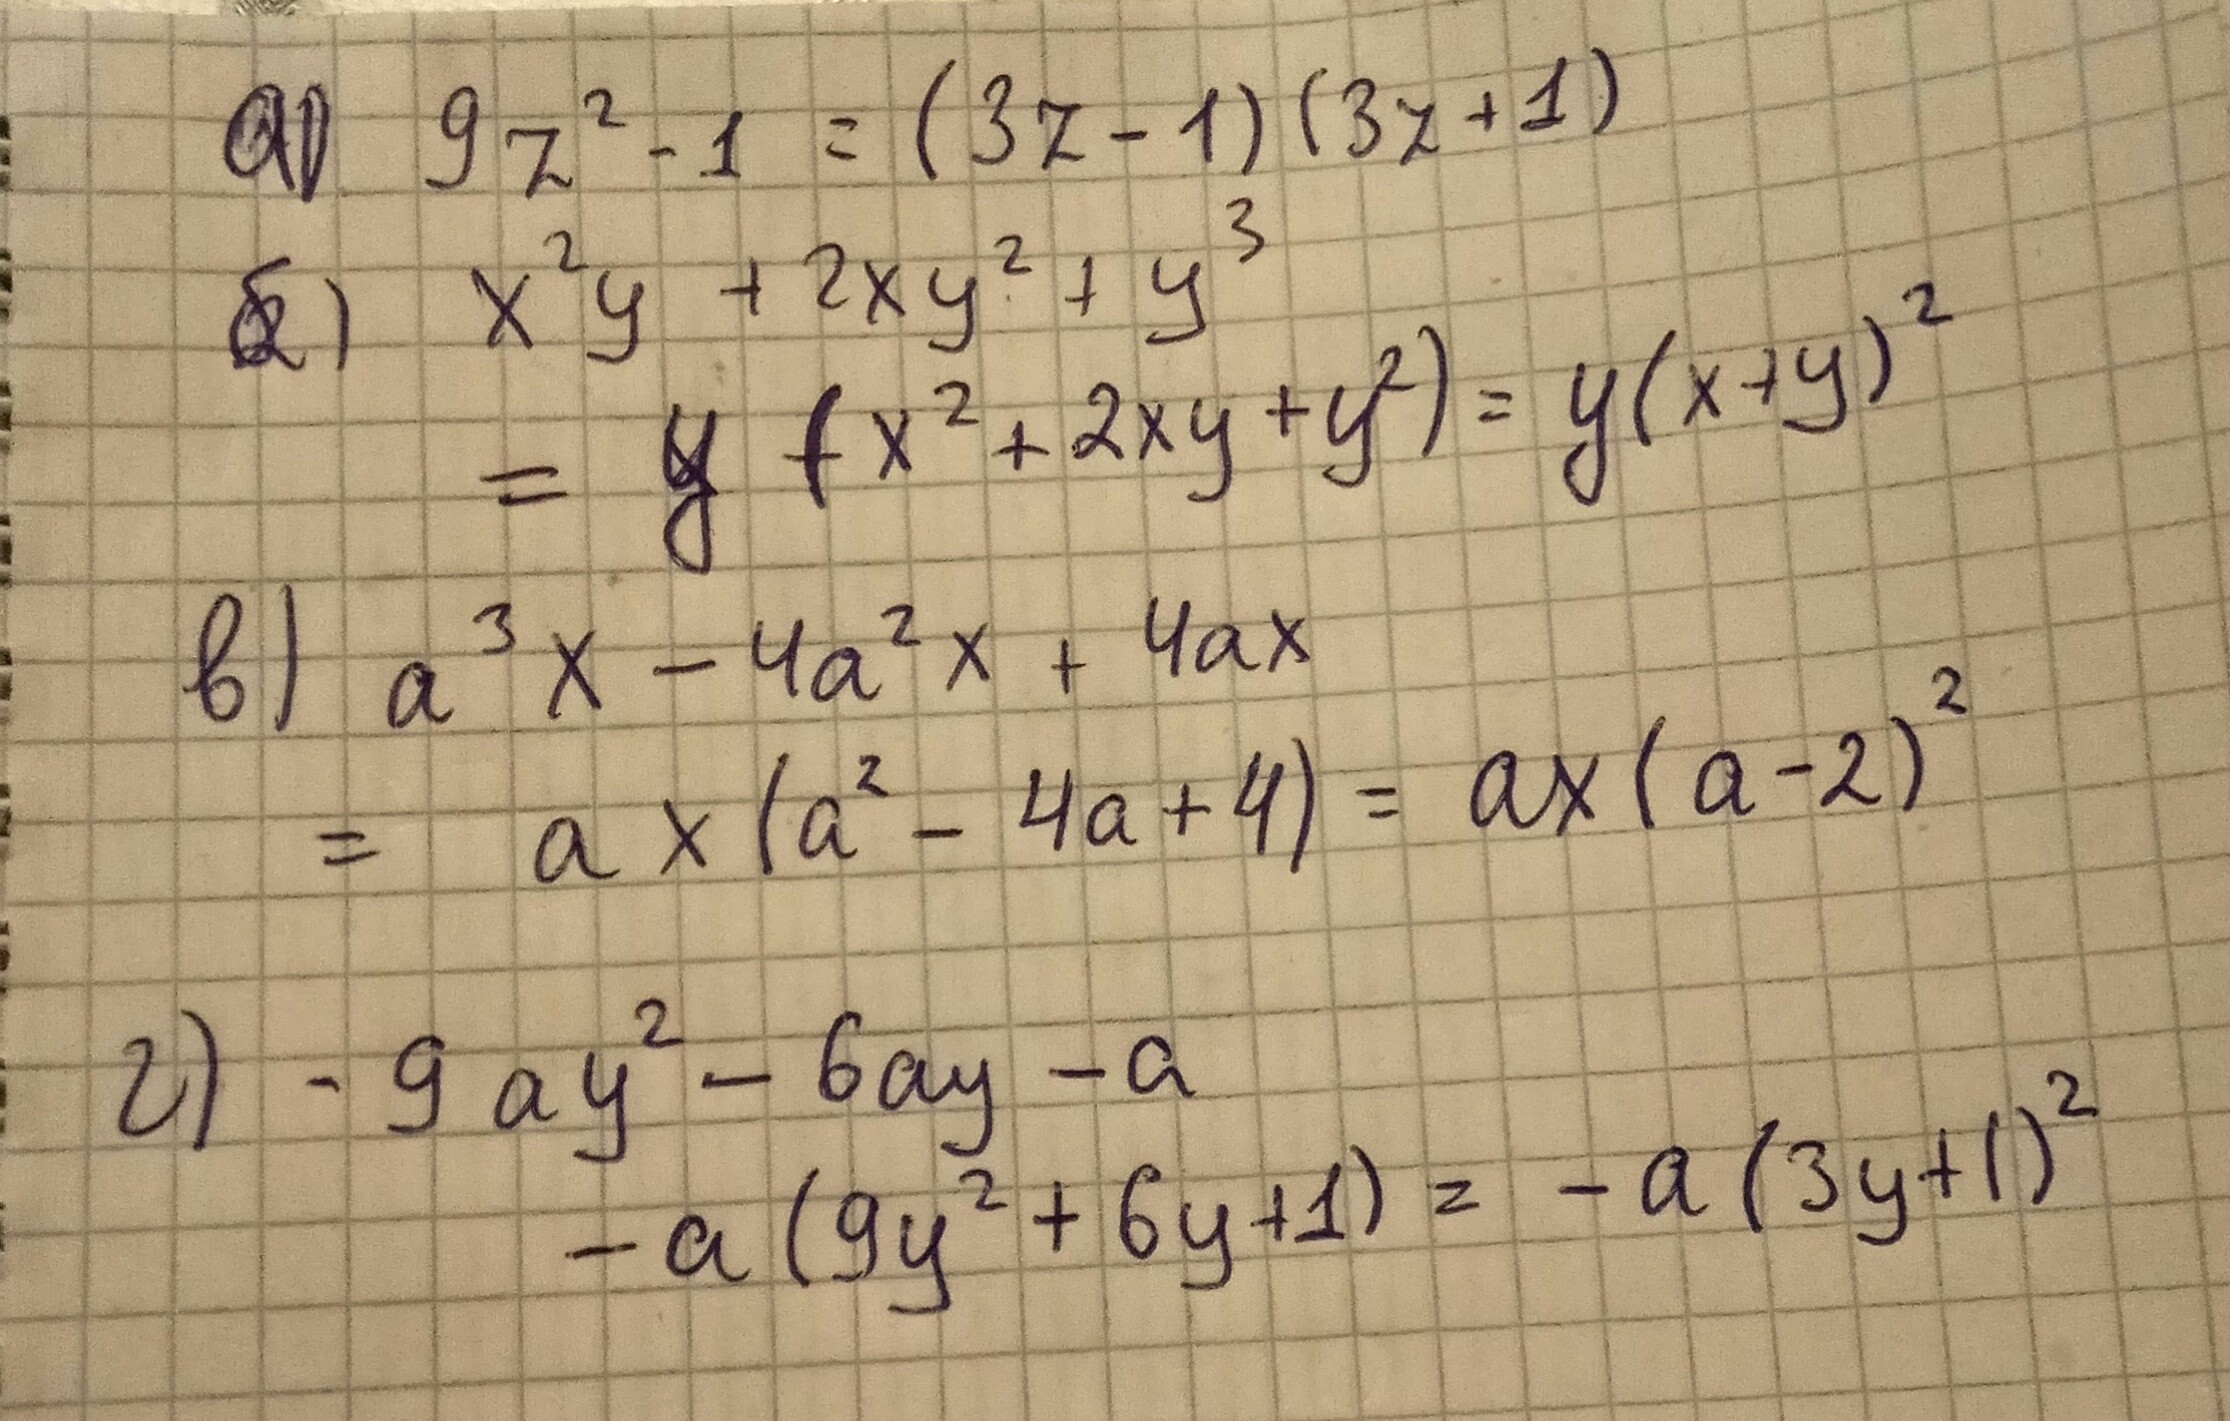 а) 9z² - 1 = (3z - 1)(3z + 1)
б) x²y + 2xy² + y³
= y (x² + 2xy + y²) = y(x + y)²
в) a³x - 4a²x + 4ax
= ax(a² - 4a + 4) = ax(a - 2)²
г) -9ay² - 6ay - a
-a(9y² + 6y + 1) = -a(3y + 1)²